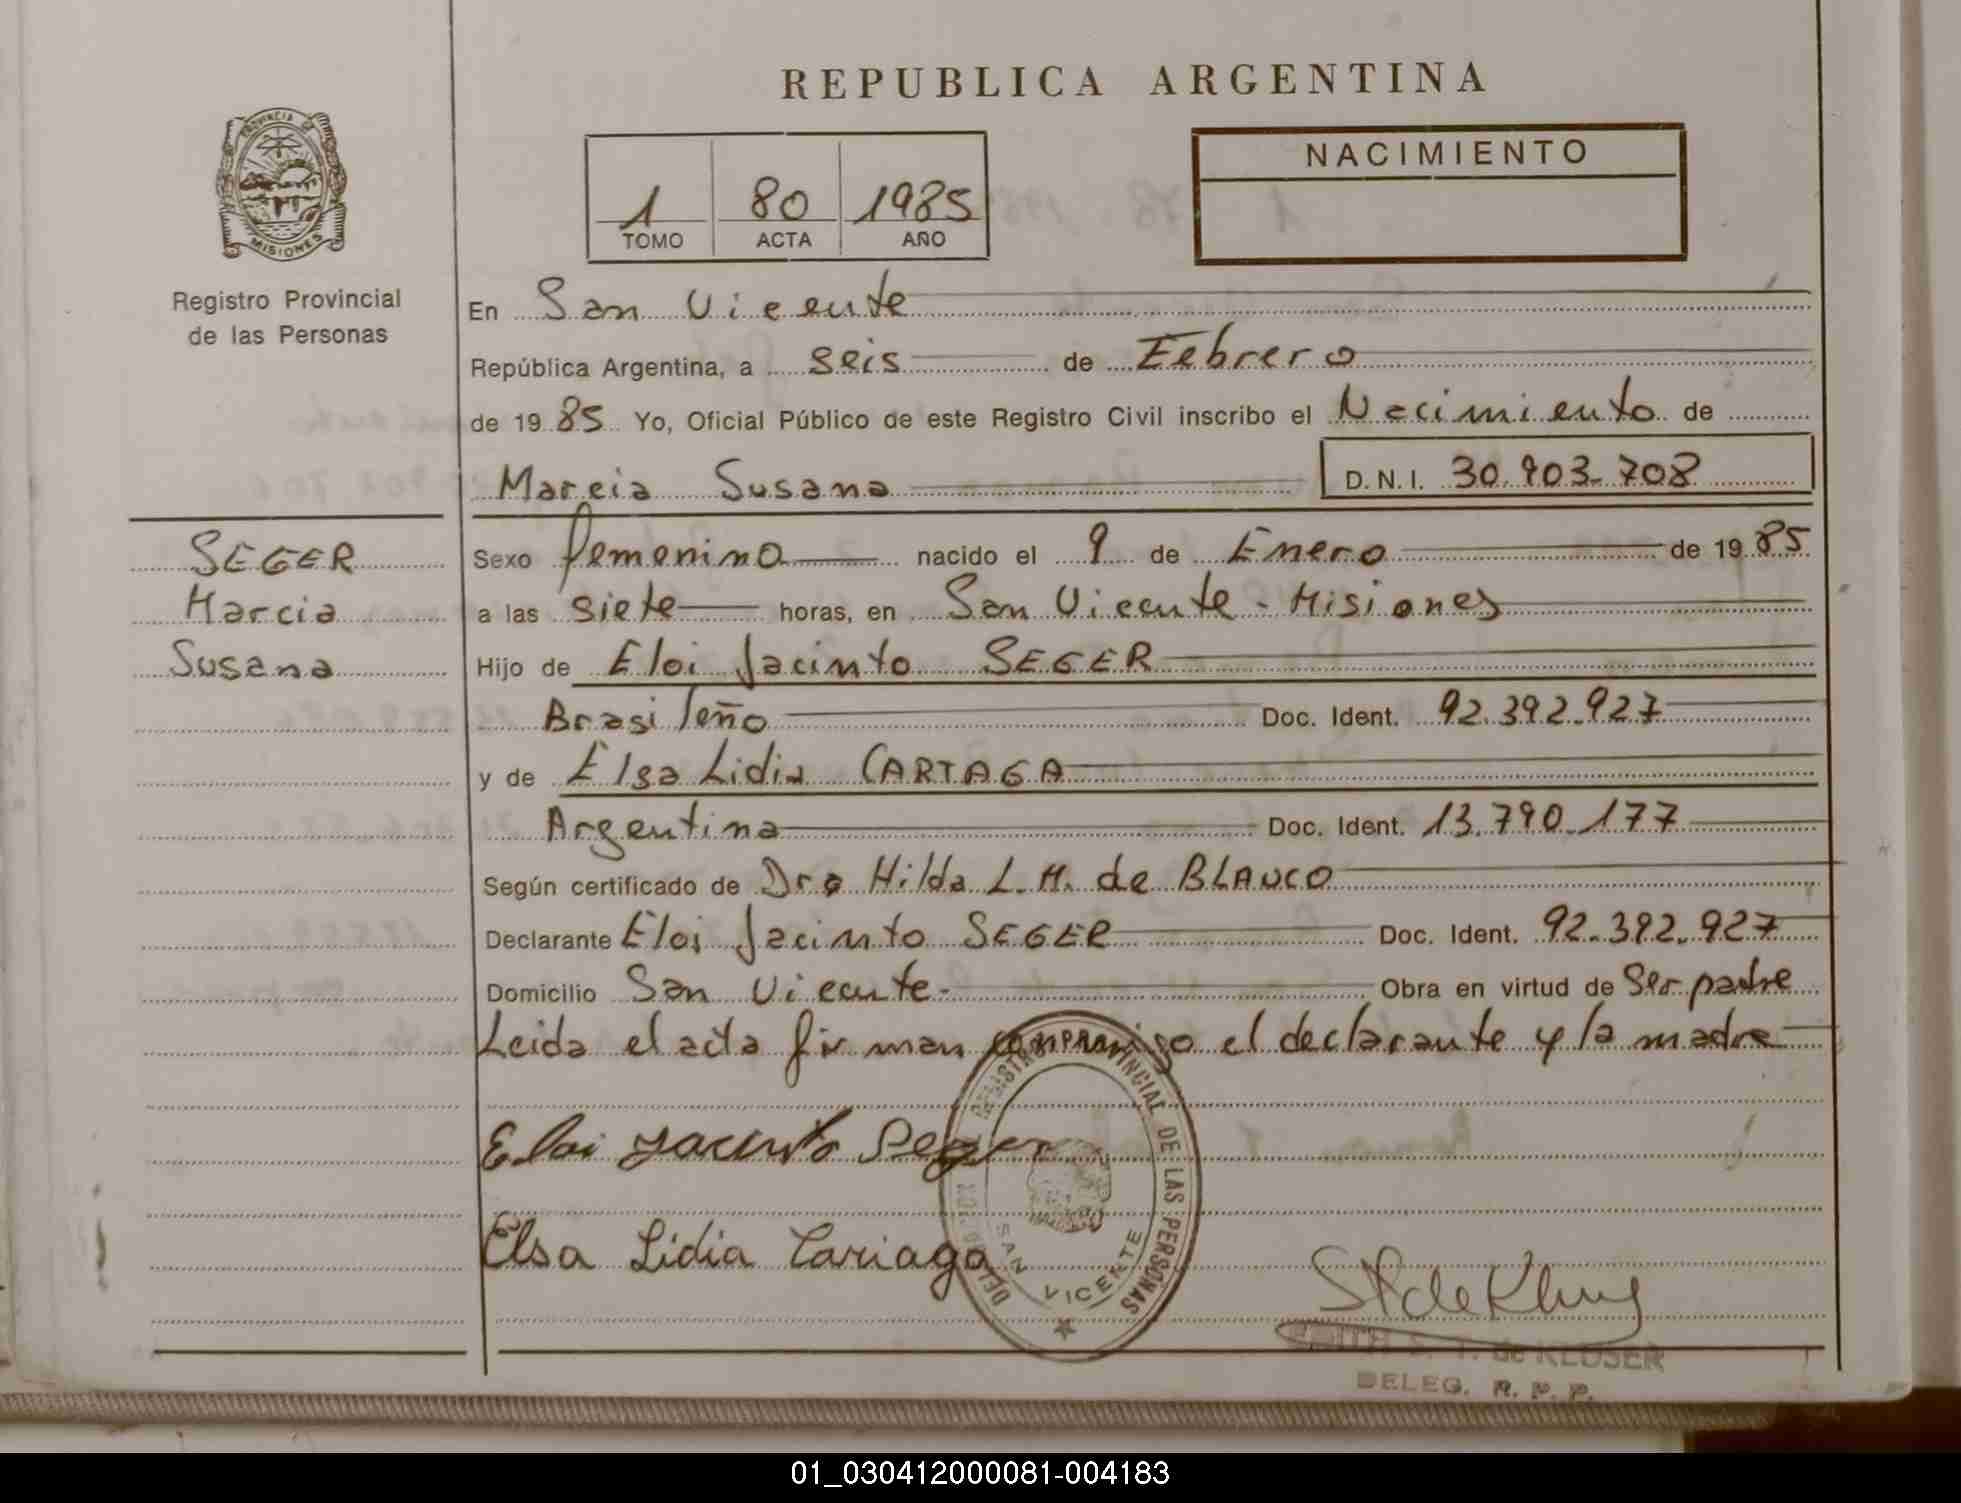 REPUBLICA ARGENTINA
PROVINCIA DE MISIONES
Registro Provincial
de las Personas
1 80 1985
TOMO ACTA AÑO
NACIMIENTO
En San Vicente
República Argentina, a seis de Febrero
de 1985 Yo, Oficial Público de este Registro Civil inscribo el Nacimiento de
Marcia Susana D.N.I. 30.903.708
SEGER
Marcia
Susana
Sexo femenino nacido el 9 de Enero de 1985
a las siete horas, en San Vicente - Misiones
Hijo de Eloi Jacinto SEGER
Brasileño Doc. Ident. 92.392.927
y de Elsa Lidia CARIAGA
Argentina Doc. Ident. 13.790.177
Según certificado de Dra Hilda L. M. de BLANCO
Declarante Eloi Jacinto SEGER Doc. Ident. 92.392.927
Domicilio San Vicente. Obra en virtud de Ser padre
Leida el acta firman conmigo el declarante y la madre
Eloi Jacinto Seger
Elsa Lidia Cariaga
REGISTRO PROVINCIAL DE LAS PERSONAS
SAN VICENTE
EDITH S. T. de KLUSER
DELEG. R. P. P.
01_030412000081-004183